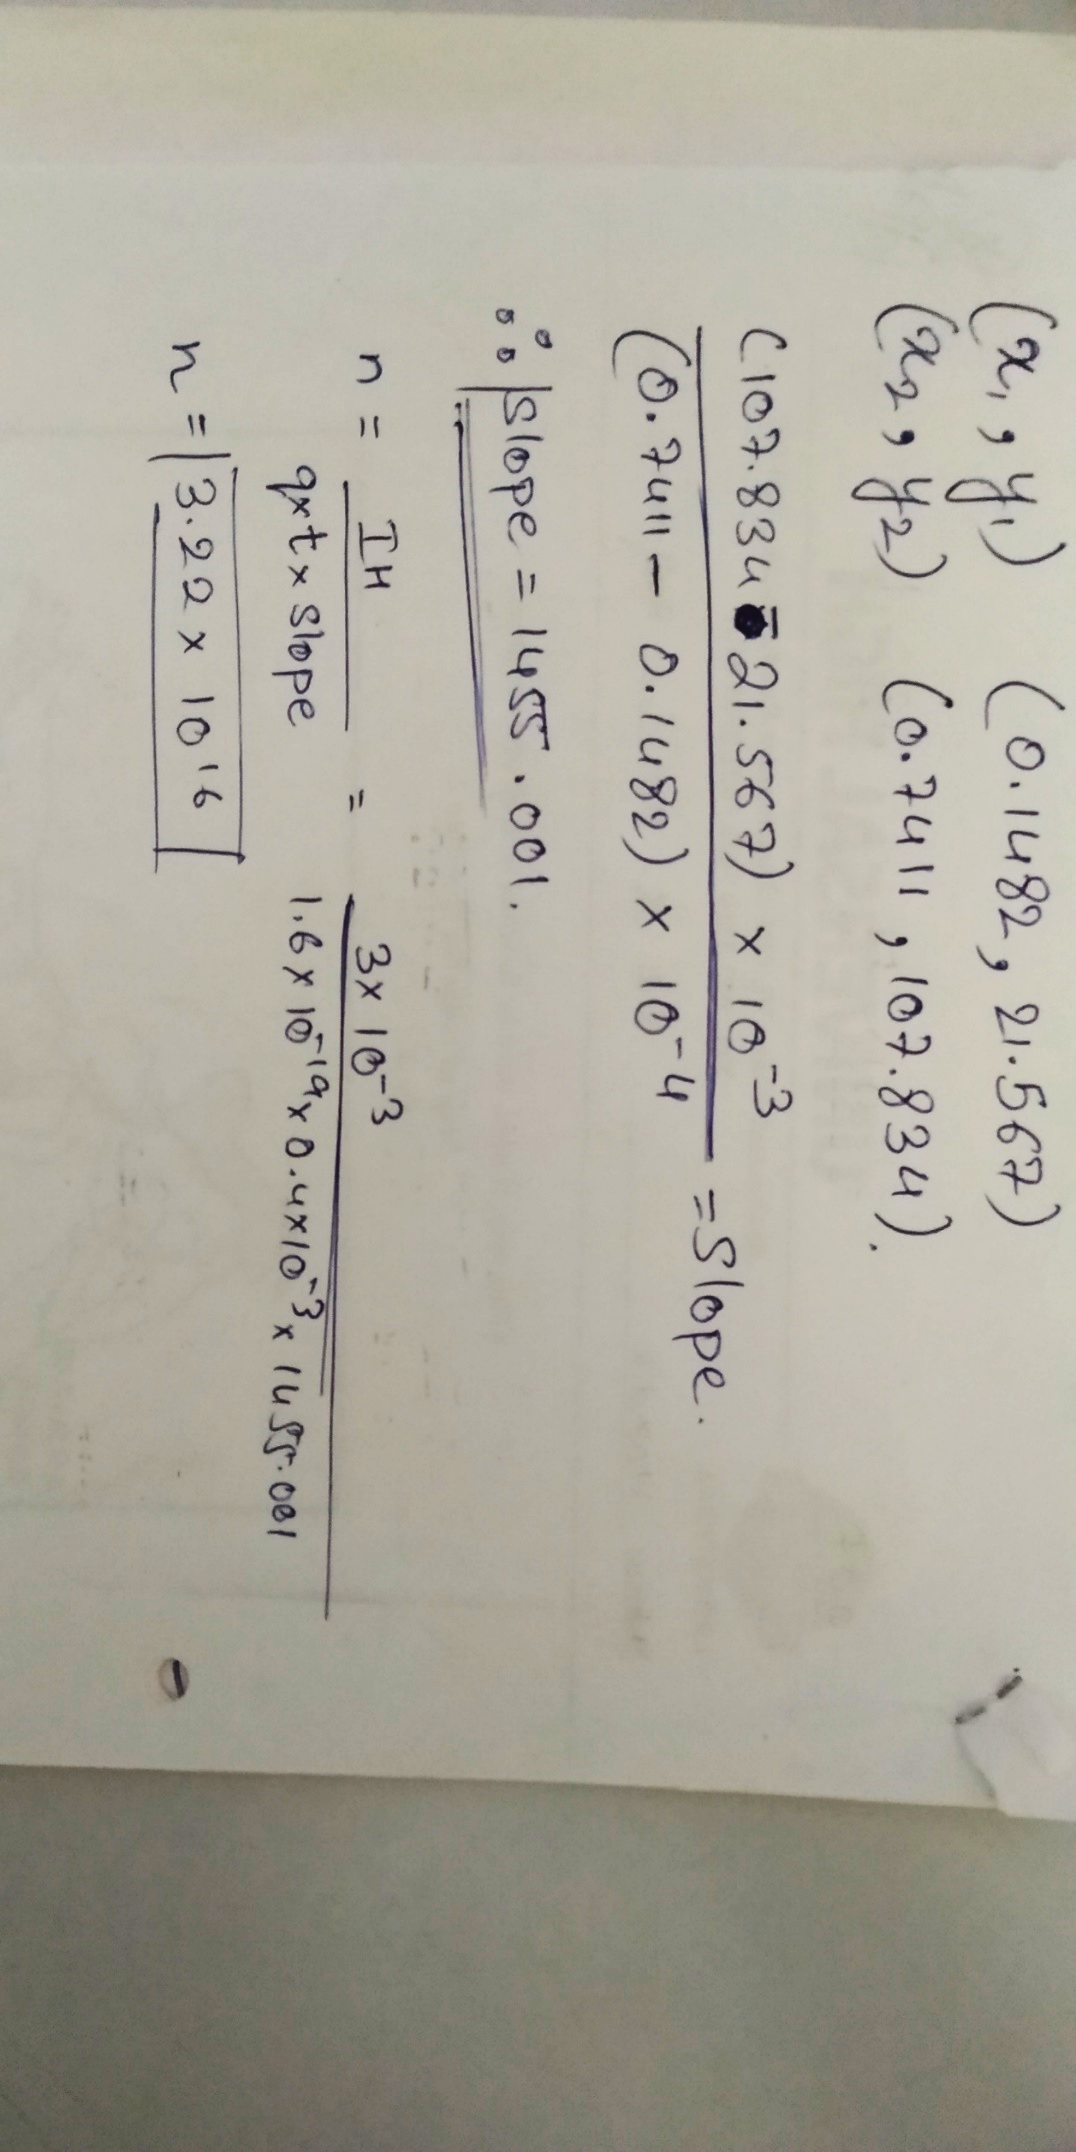 (x₁, y₁) (0.1482, 21.567)
(x₂, y₂) (0.7411, 107.834).
(107.834 - 21.567) × 10⁻³
(0.7411 - 0.1482) × 10⁻⁴ = Slope.
∴ Slope = 1455.001.
n = IH / q×t×slope = 3×10⁻³ / 1.6×10⁻¹⁹×0.4×10⁻³×1455.001
n = 3.22 × 10¹⁶